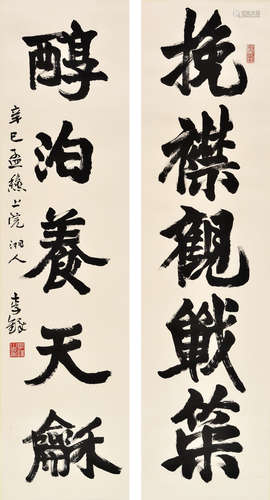 挽襟觀戰策
醇泊養天龢
辛巳孟穐上浣 湘人 李鐸